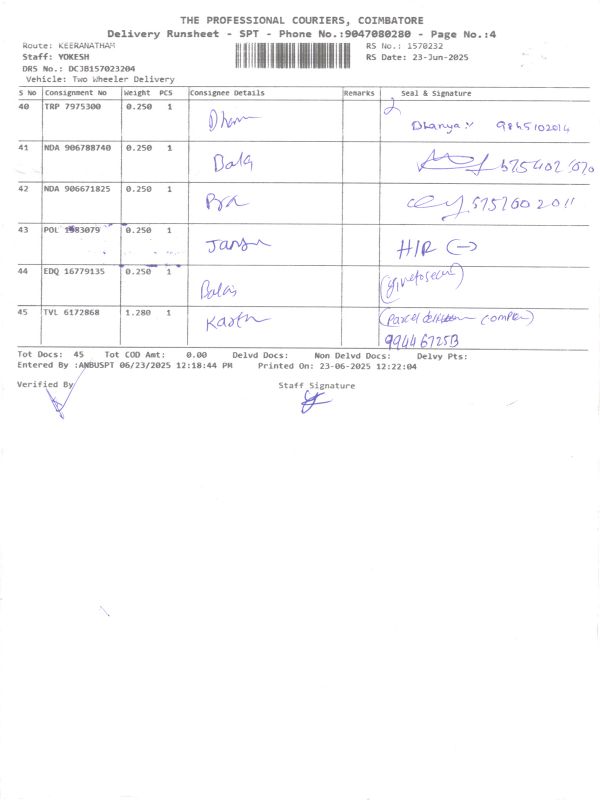 THE PROFESSIONAL COURIERS, COIMBATORE
Delivery Runsheet - SPT - Phone No.:9047080280 - Page No.:4
Route: KEERANATHAM RS No.: 1570232
Staff: YOKESH RS Date: 23-Jun-2025
DRS No.: DCJB157023204
Vehicle: Two Wheeler Delivery
S No Consignment No Weight PCS Consignee Details Remarks Seal & Signature
40 TRP 7975300 0.250 1
Dhanya
41 NDA 906788740 0.250 1 Bala
42 NDA 906671825 0.250 1
43 POL 1983079 0.250 1
H/R
44 EDQ 16779135 0.250 1
45 TVL 6172868 1.280 1 Karth
Tot Docs: 45 Tot COD Amt: 0.00 Delvd Docs: Non Delvd Docs: Delvy Pts:
Entered By :ANBUSPT 06/23/2025 12:18:44 PM Printed On: 23-06-2025 12:22:04
Verified By Staff Signature